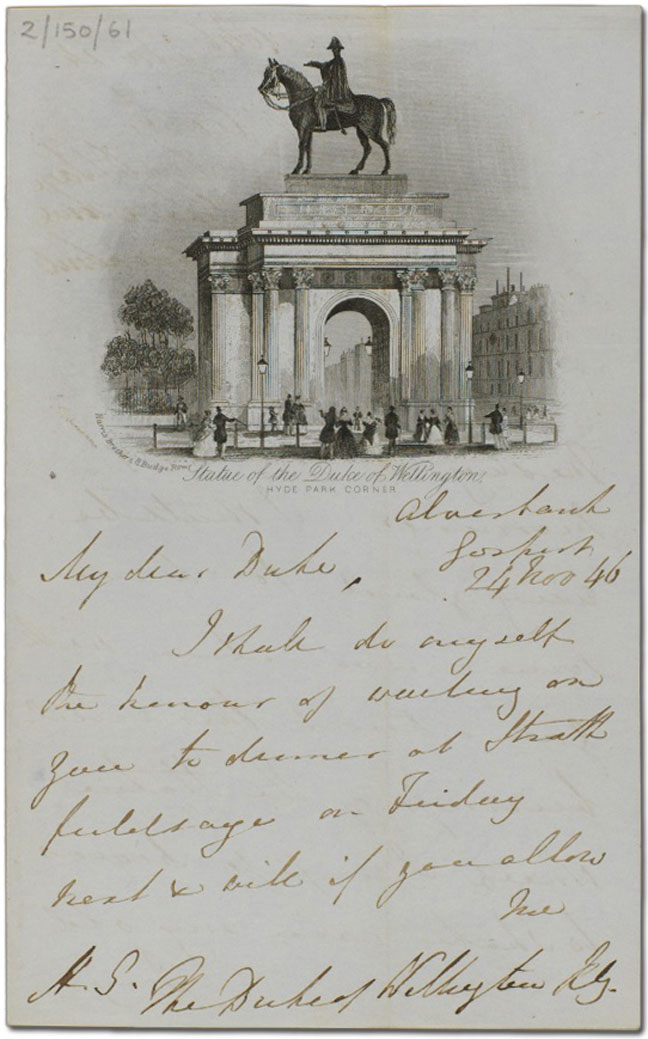 2/150/61
Harris Brothers
Statue of the Duke of Wellington,
HYDE PARK CORNER
Alverbank
Gosport
24 Nov 46
My dear Duke,
I shall do myself
the honour of waiting on
you to dinner at Strath
fieldsaye on Friday
next & will if you allow
me
The Duke of Wellington KG.